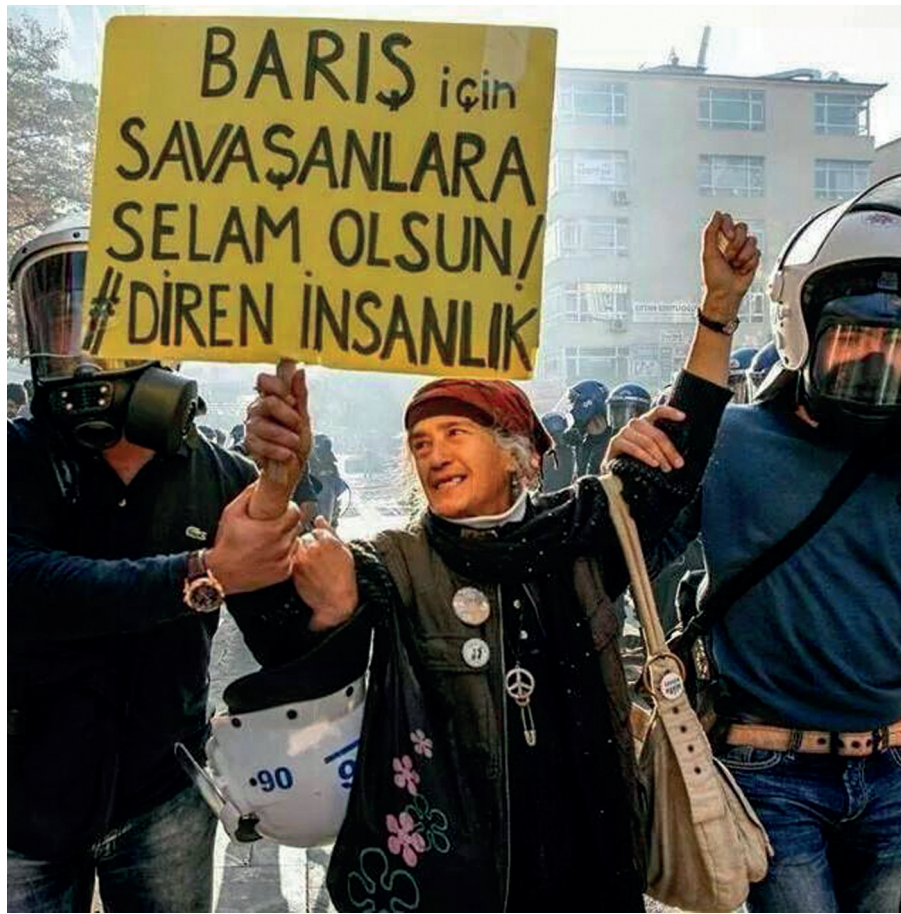 BARIŞ için
SAVAŞANLARA
SELAM OLSUN!
#DİREN İNSANLIK
90
9